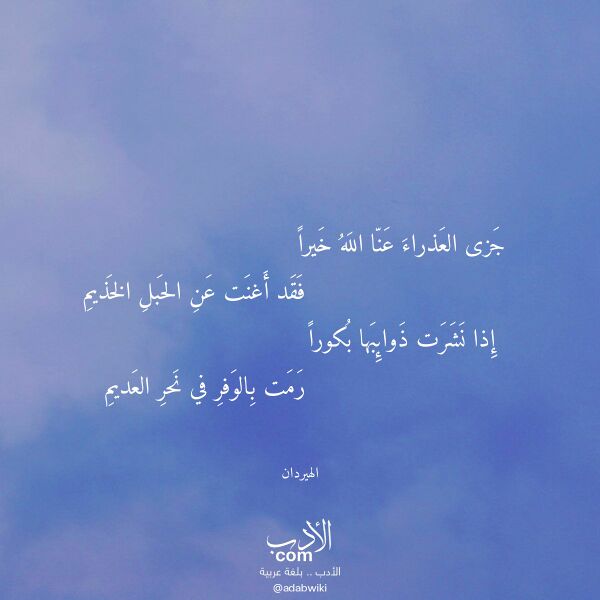 جَزى العَذراءَ عَنّا اللَهُ خَيراً
فَقَد أَغنَت عَنِ الحَبلِ الخَذيمِ
إِذا نَشَرَت ذَوائِبَها بُكوراً
رَمَت بِالوَفرِ في نَحرِ العَديمِ
الهيردان
الأدب
com
الأدب .. بلغة عربية
@adabwiki